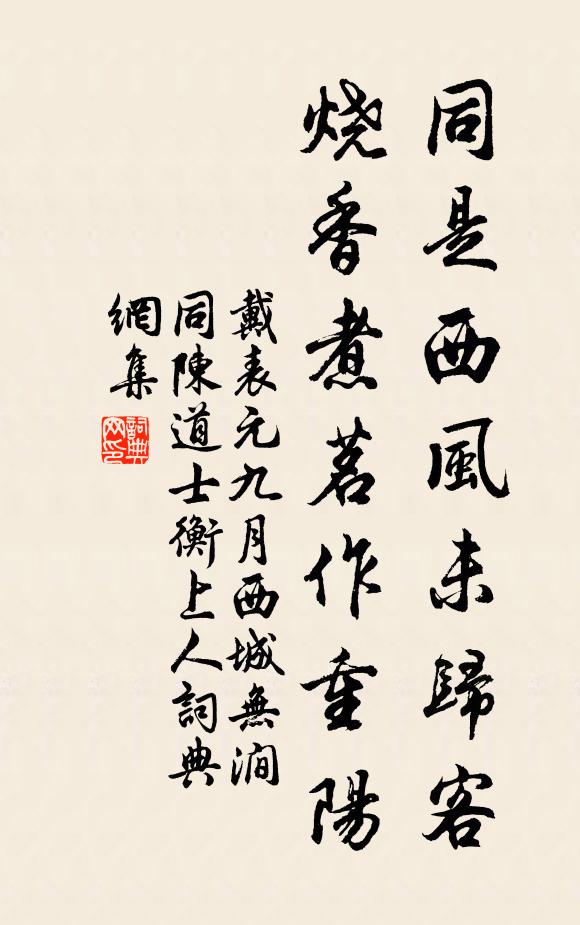 同是西風未歸客
烧香煮茗作重陽
戴表元九月西城無澗
同陳道士衡上人詞典
網集
詞典網印